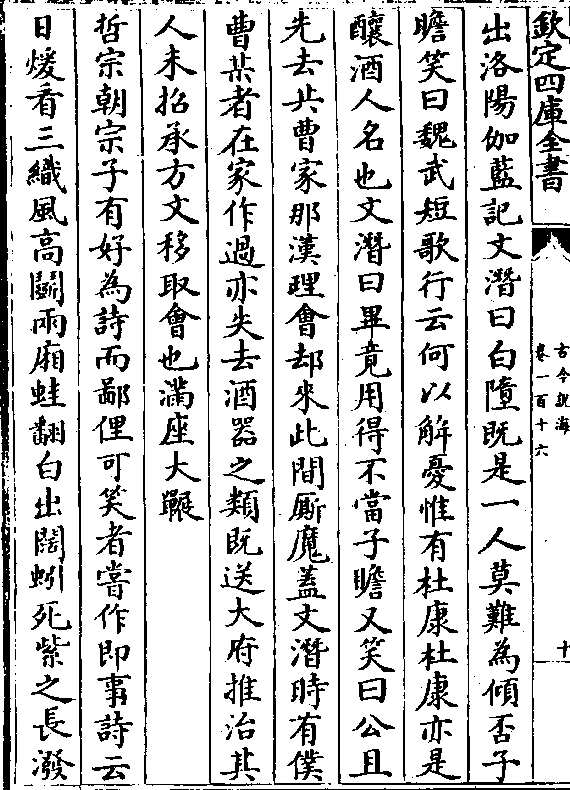 欽定四庫全書
古今說海
卷一百十六
十
出洛陽伽藍記文潛曰白墮既是一人莫難為傾否子
瞻笑曰魏武短歌行云何以解憂惟有杜康杜康亦是
釀酒人名也文潛曰畢竟用得不當子瞻又笑曰公且
先去共曹家那漢理會却來此間厮魔蓋文潛時有僕
曹某者在家作過亦失去酒器之類既送大府推治其
人未招承方文移取會也滿座大噱
哲宗朝宗子有好為詩而鄙俚可笑者嘗作即事詩云
日煖看三織風高鬬兩廂蛙翻白出闊蚓死紫之長潑